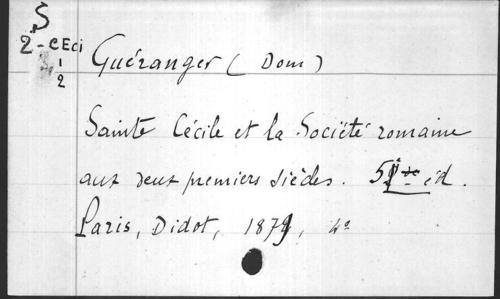 S
2-CECi
1
2
Guéranger (Dom)
Sainte Cécile et la Société romaine
aux deux premiers siècles. 5e éd.
Paris, Didot, 1879, 4°